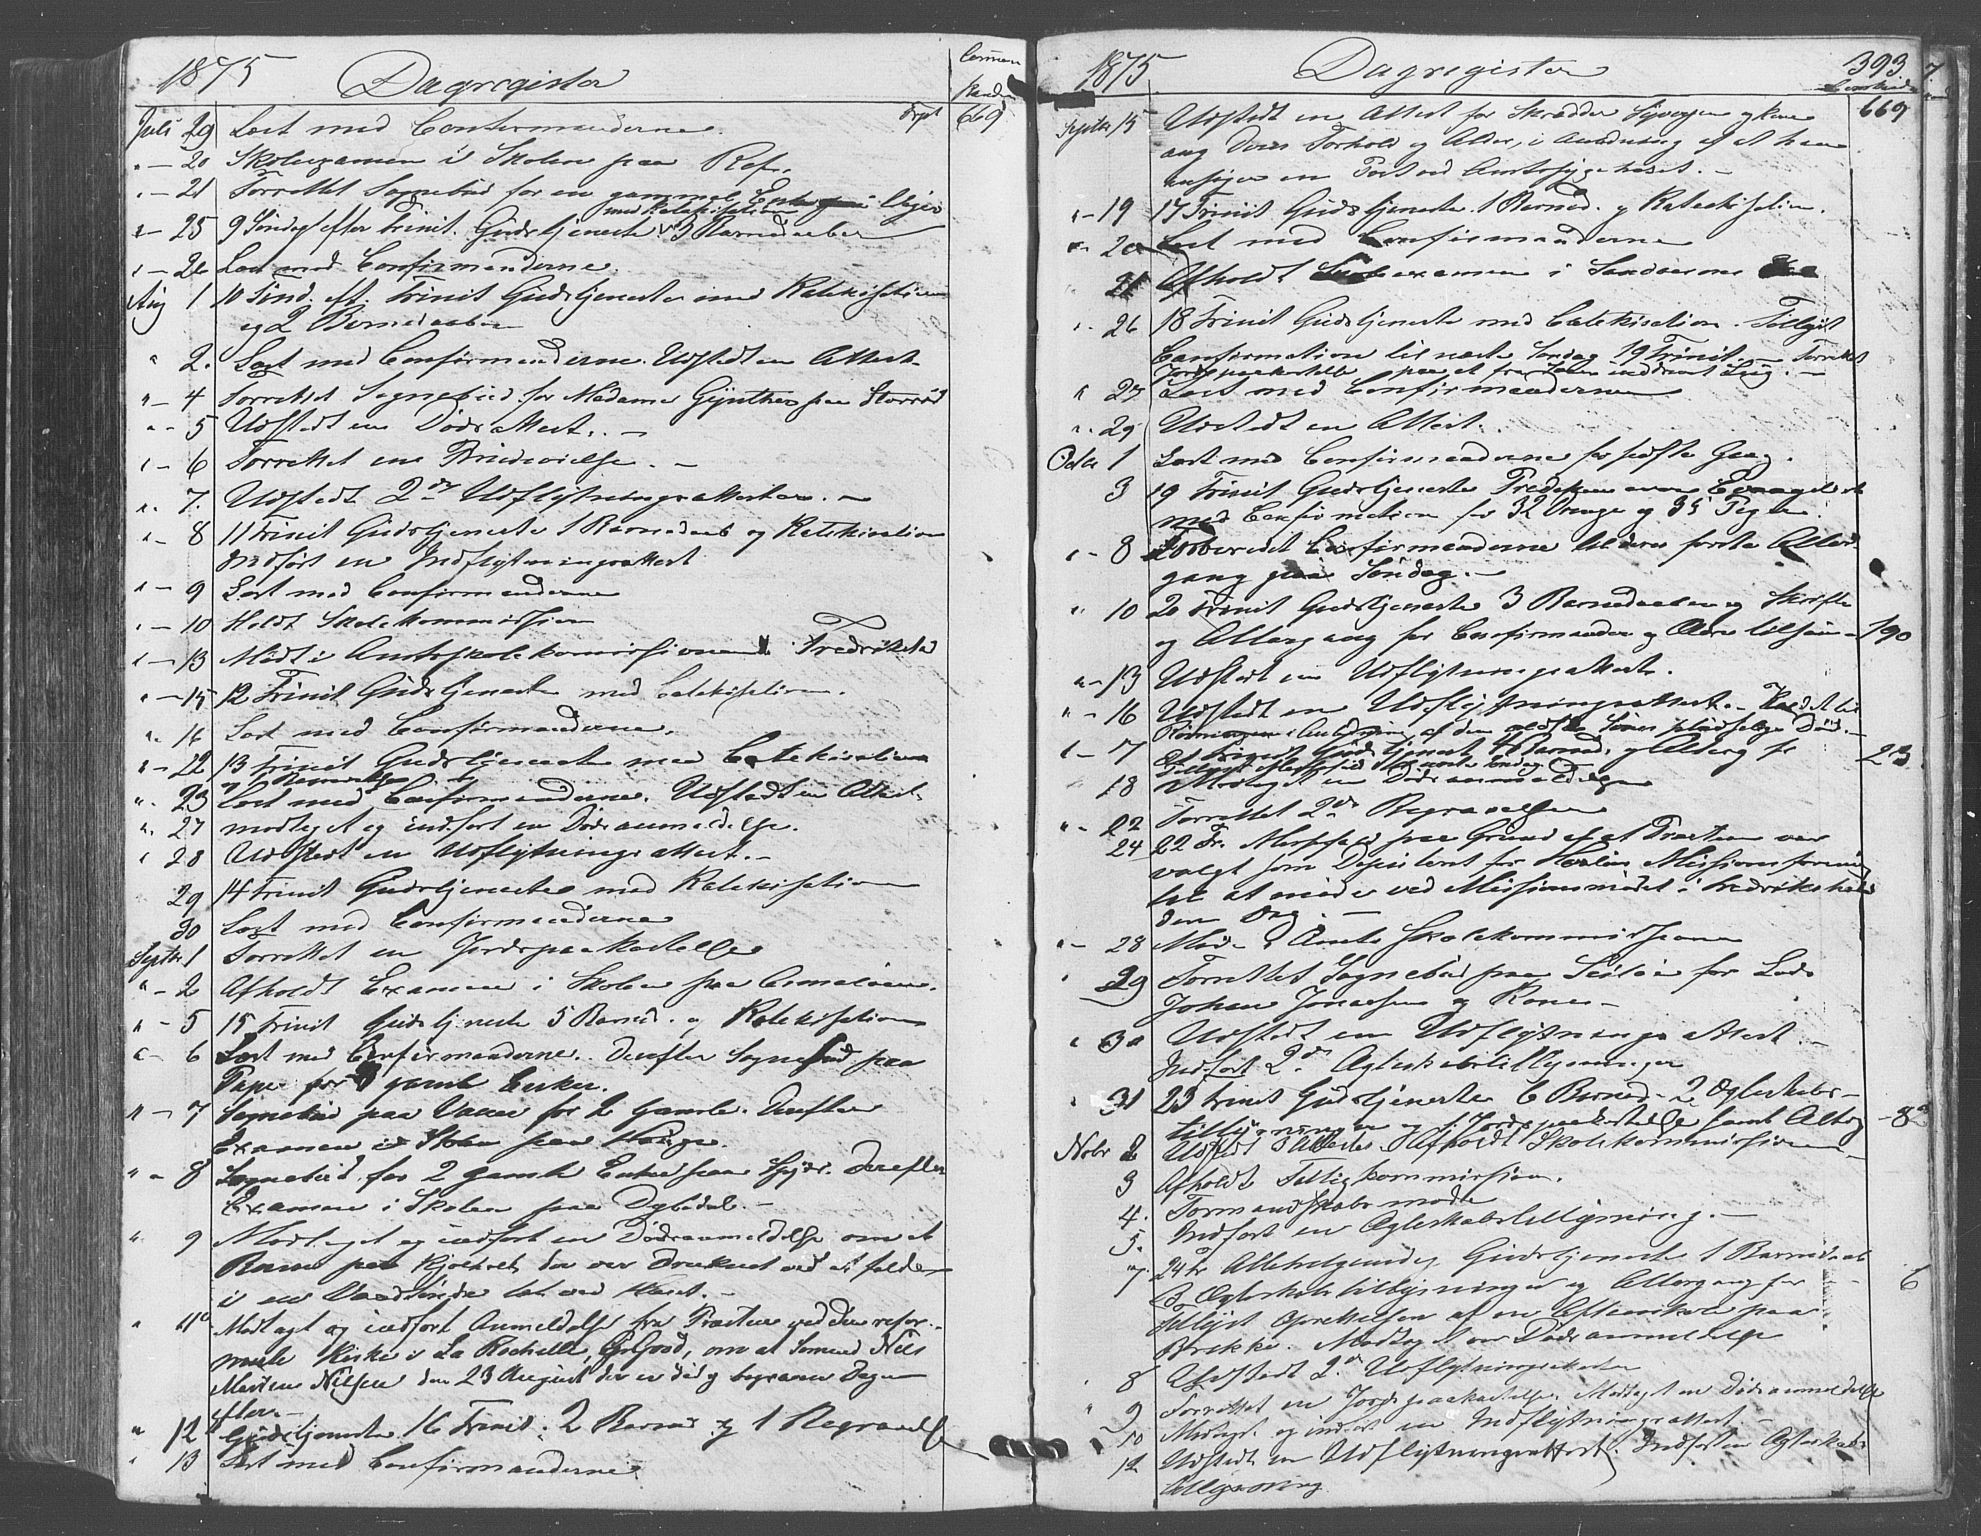 1875 Dagregister Commun
Kander
Juli 29 Læst med Confermanderne. Trpt 669
" — 20 Skoleexamen i Skolen paa
" — 21 Forrettet Sognebud for en gammel Enke
med Katekisation
" — 25 9 Søndag efter Trinit. Gudstjeneste 3 Barnedaaber
" — 26 Læst med Confirmanderne.
Aug 1 10 Sønd. eft. Trinit Gudstjeneste med Katekisation
og 2 Barnedaaber
" 2. Læst med Confirmanderne. Udstedt en Attest
" — 4 Forrettet Sognebud for Madame Gynther paa
" — 5 Udstedt en Dødsattest. —
" — 6 Forrettet en Brudevielse. —
" 7. Udstedt 2de Udflytningsattester. —
" — 8 11 Trinit Gudstjeneste 1 Barnedaab og Katekisation
Indført en Indflytningsattest
" — 9 Læst med Confirmanderne
" — 10 Holdt Skolekommission
" — 13 Mødt i Amtsskolekomissionen i Fredrikstad
" — 15 12 Trinit Gudstjeneste med Catekisation.
" 16 Læst med Confirmanderne.
" — 22 13 Trinit Gudstjeneste med Catekisation
" 23 Læst med Confirmanderne. Udstedt en Attest
" 27 modtaget og indført en Dødsanmeldelse.
" 28 Udstedt en Udflytningsattest. —
29 14 Trinit Gudstjeneste med Katekisation
30 Læst med Confirmanderne
Septbr 1 Forrettet en Jordspaakastelse
" — 2 Afholdt Examen i Skolen paa
" — 5 15 Trinit Gudstjeneste 5 Barned. og Katekisation
" — 6 Læst med Confirmanderne. Derefter Sognebud paa
for gamle Enker.
" — 7 Sognebud paa for 2 gamle. Derefter
Examen i Skolen paa
" — 8 Sognebud for 2 gamle Enker paa Derefter
Examen i Skolen paa Dybedal. —
" 9 Modtaget og indført en Dødsanmeldelse om et
Barn paa der var Druknet ved at falde
i en ved Huset. —
" 11 Modtagt og indført Anmeldelse fra Præsten ved den refor-
merte Kirke i La Rochelle, Good, om at Sømand Nils
Martin Nilsen den 23 August der er død og begraven Dagen
efter. —
" 12 Gudstjeneste 16 Trinit. 2 Barned og 1 Begravelse
" 13 Læst med Confirmanderne
1875 Dagregister 393
Septbr 15 Udstedt en Attest for Skrædder og Kone 669
ang Deres Forhold og Alder, i Anledning af at han
ansøger en Post ved Amtssygehuset. —
" — 19 17 Trinit Gudstjeneste 1 Barned. og Katekisation.
" — 20 Læst med Confirmanderne
21 Afholdt Skoleexamen i
" 26 18 Trinit Gudstjeneste med Catekisation. Tillyst
Confirmation til næste Søndag 19 Trinit. — Forrettet
Jordspaakastelse paa et fra Søen inddrevet Liig. —
" 27 Læst med Confirmanderne
" 29 Udstedt en Attest.
Octbr 1 Læst med Confirmanderne for sidste Gang.
3 19 Trinit Gudstjeneste Prædiken over Evangeliet
med Confirmation for 32 Drenge og 35 Piger.
" — 8 Forberedt Confirmanderne til deres første Alter-
gang paa Søndag. —
" 10 20 Trinit Gudstjeneste 3 Barnedaaber og Skrifte
og Altergang for Confirmander og Ældre tilsammen 190
" — 13 Udstedt en Udflytningsattest.
" — 16 Udstedt en Udflytningsattest. —
i Anledning af den ældste Søns pludselige Død. —
" — 7 21 Trinit Gudstjeneste Barned. og Alterg for 23
18 Modtaget en Dødsanmeldelse
" — 22 Forrettet 2de Begravelser
24 22 Tr. Messefald paa Grund af at Præsten var
valgt som Deputeret for Missionsforening
til at møde ved Missionsmødet i Fredrikshald
den Dag. —
" — 28 Møde i Amts Skolekommissionen
" 29 Forrettet Sognebud paa for Lods
Johan Jonassen og Kone. —
" 30 Udstedt en Udflytningsattest —
Indført 2de Ægteskabstillysninger
" 31 23 Trinit Gudstjeneste 6 Barned. 2 Ægteskabs-
tillysninger og 1 Jordspaakastelse samt Alterg — 8
Nobr 2 Udstedt 3 Attester. Afholdt Skolekommission
3 Afholdt Fattigkommission.
4. Formandskabsmøde
5. Indført en Ægteskabstillysning. —
" 7. 24 Tr Allehelgensdag Gudstjeneste 1 Barnedaab
3 Ægteskabstillysninger og Altergang for — 6
Tillyst Oprettelsen af en Aftenskole paa
Brekke. Modtaget en Dødsanmeldelse
" 8 Udstedt 2de Udflytningsattester
" 9 Forrettet en Jordspaakastelse. Modtaget en Dødsanmeldelse
" 10 Modtaget og indført en Indflytningsattest. —
12 Udstedt en Udflytningsattest. Indført en Ægteskabs-
tillysning